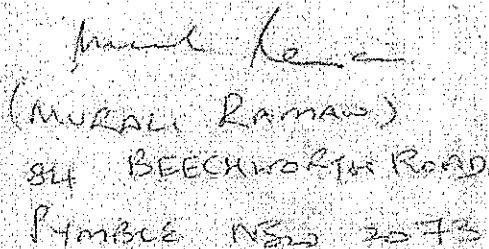 (MURALI RAMAN)
84 BEECHWORTH ROAD
PYMBLE NSW 2073